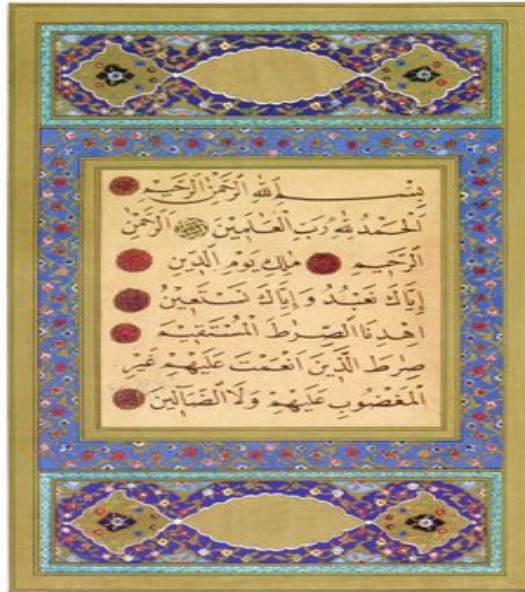 بِسْمِ اللهِ الرَّحْمٰنِ الرَّحِيْمِ
اَلْحَمْدُ لِلّٰهِ رَبِّ الْعٰلَمِيْنَ اَلرَّحْمٰنِ
الرَّحِيْمِ مٰلِكِ يَوْمِ الدِّيْنِ
اِيَّاكَ نَعْبُدُ وَاِيَّاكَ نَسْتَعِيْنُ
اِهْدِنَا الصِّرَاطَ الْمُسْتَقِيْمَ
صِرَاطَ الَّذِيْنَ اَنْعَمْتَ عَلَيْهِمْ غَيْرِ
الْمَغْضُوْبِ عَلَيْهِمْ وَلَا الضَّآلِّيْنَ